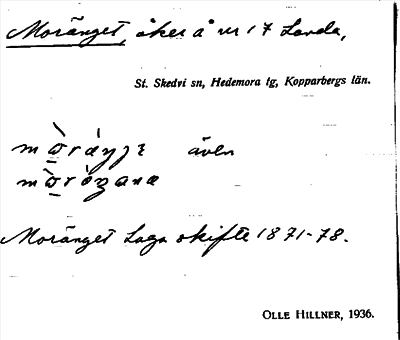 Moränget, åker å nr 17 Landa,
St. Skedvi sn, Hedemora tg, Kopparbergs län.
även
Moränget Laga skifte 1871-78.
OLLE HILLNER, 1936.